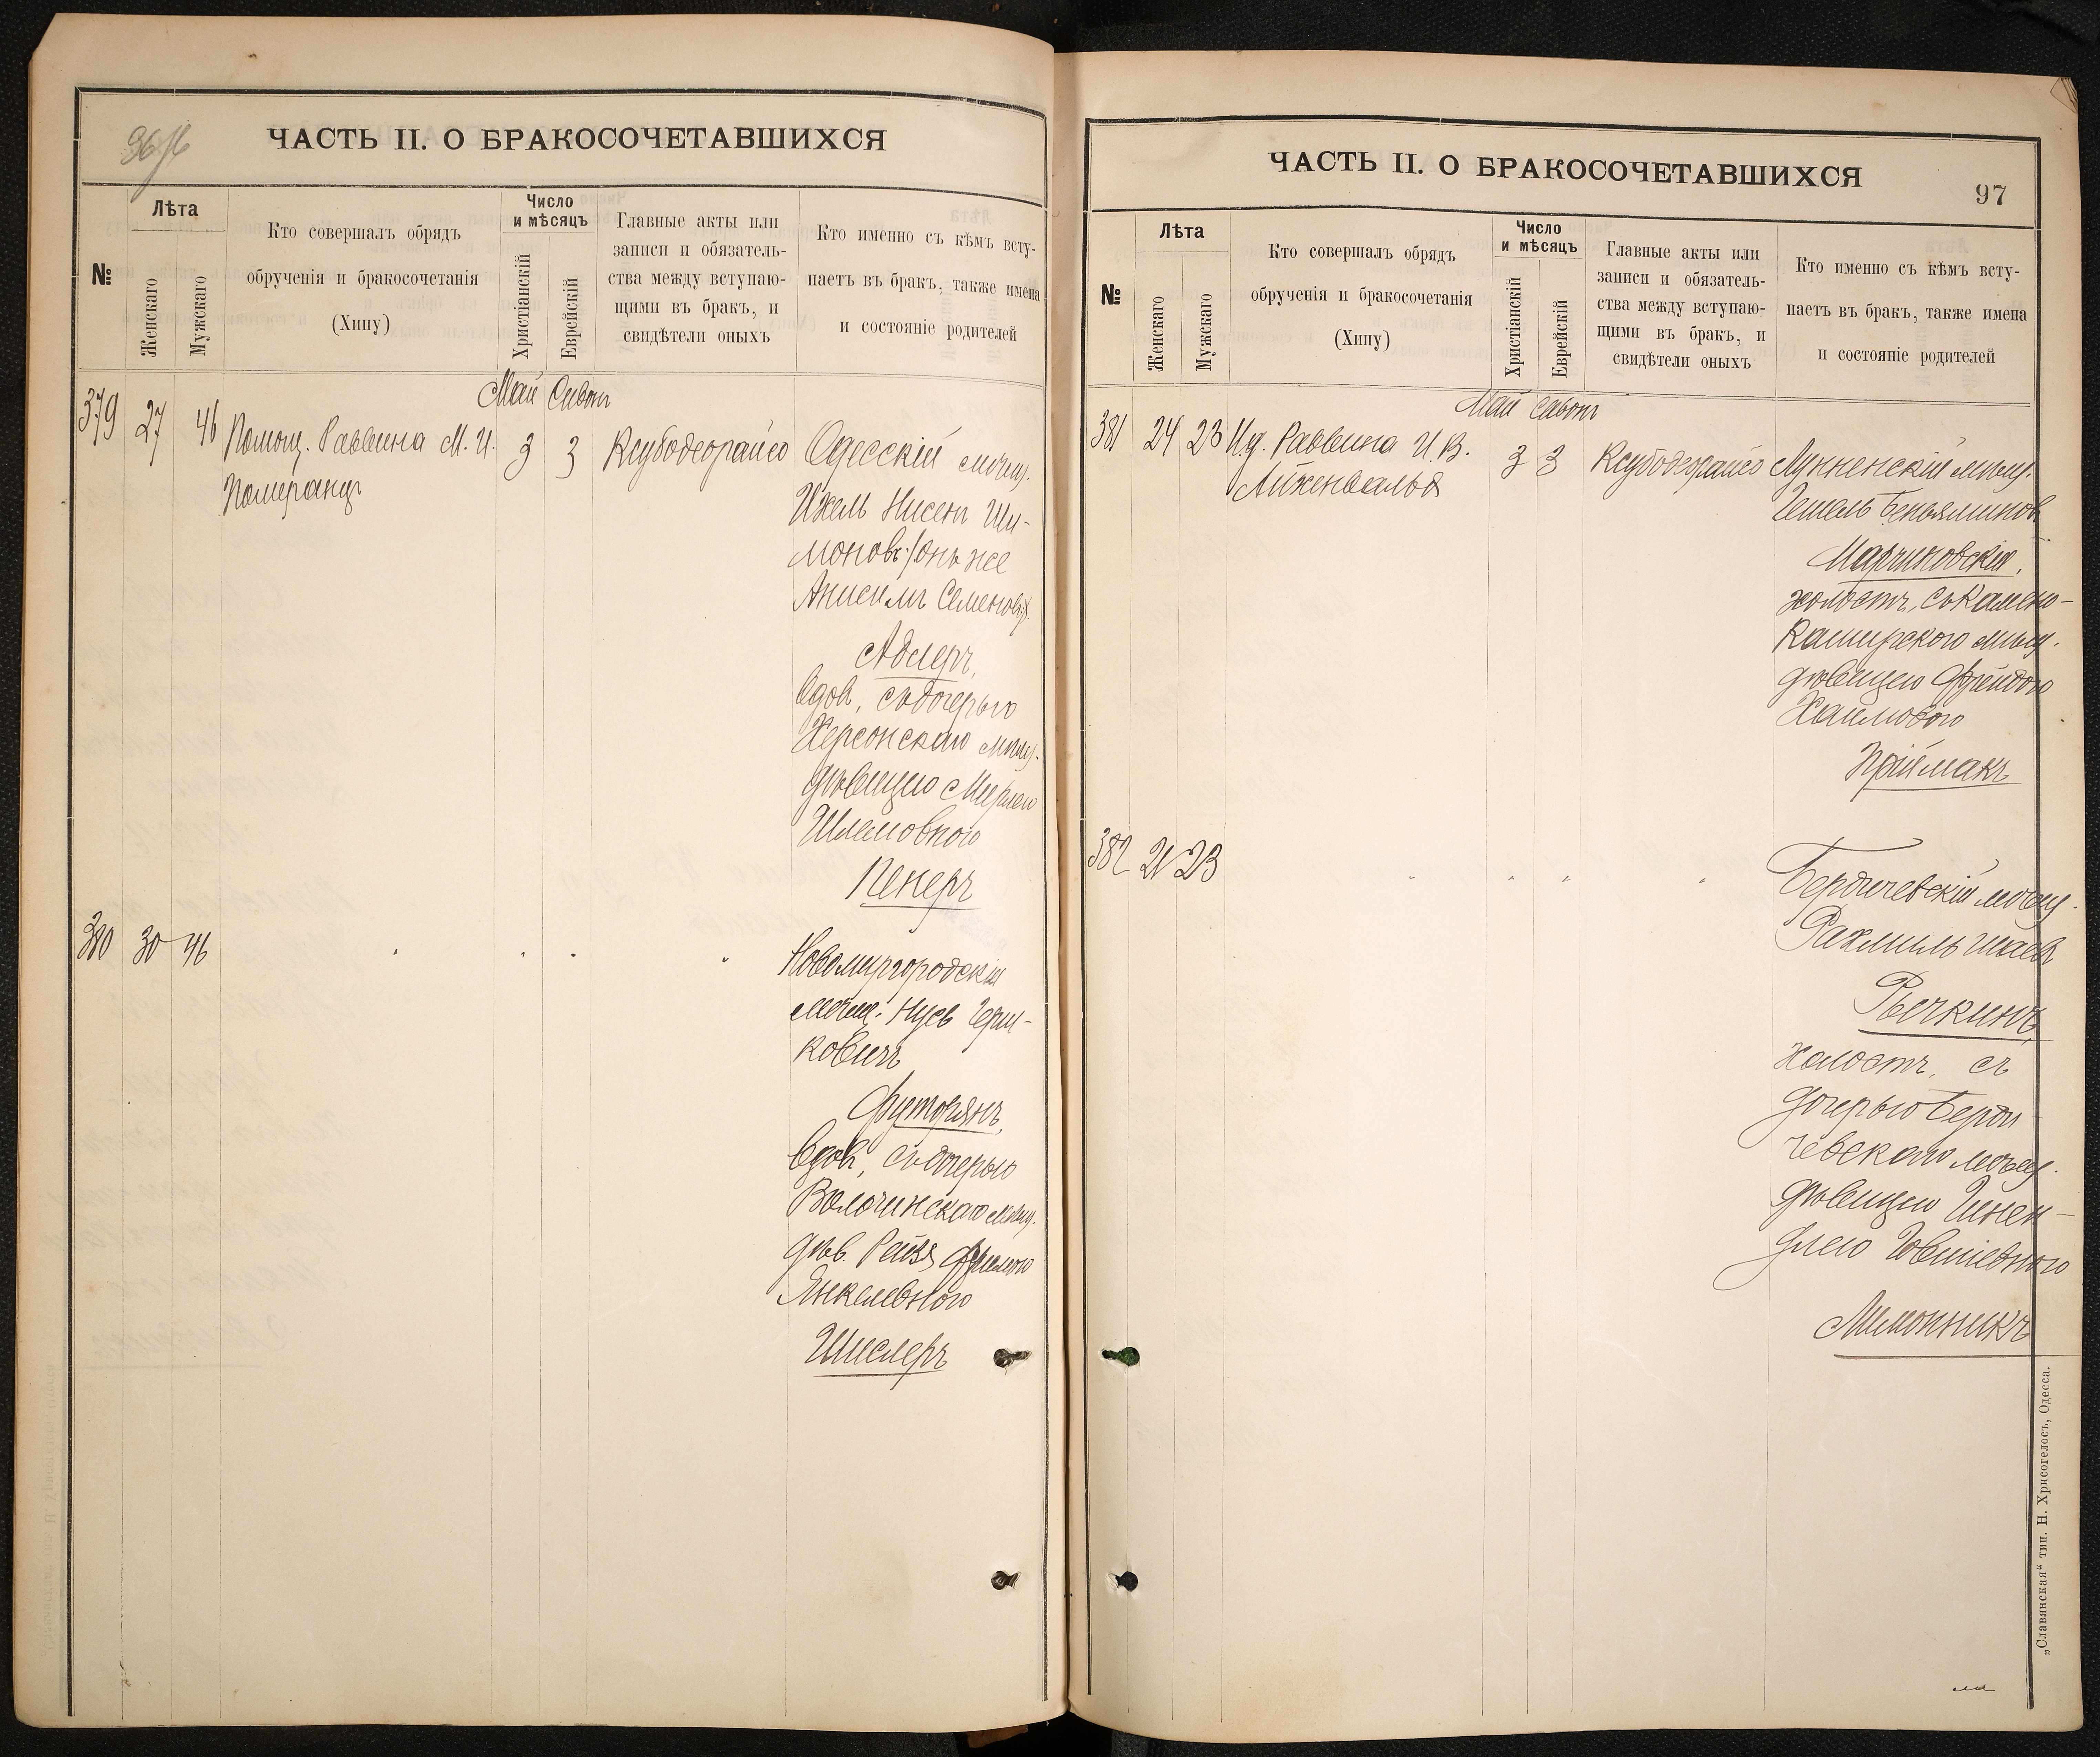 ЧАСТЬ II. О БРАКОСОЧЕТАВШИХСЯ
№
Лѣта
Женскаго
Мужскаго
Кто совершалъ обрядъ
обрученія и бракосочетанія
(Хипу)
Число
и мѣсяцъ
Христіанскій
Еврейскій
Главные акты или
записи и обязатель-
ства между вступаю-
щими въ бракъ, и
свидѣтели оныхъ
Кто именно съ кѣмъ всту-
паетъ въ бракъ, также имена
и состояніе родителей
Май Сивонъ
379 27 46 Помощ. Раввина М. И.
Померанцъ
3 3
Ксубодеорайсо
Одесскій мѣщ.
Ихель Нисенъ Ши-
моновъ /онъ же
Анисимъ Семеновъ/
Адлеръ,
вдов, съ дочерью
Херсонскаго мѣщ.
дѣвицею Мирлею
Шлемовною
Пекеръ
380 30 46
Новомиргородскій
мѣщ. Нусь Герш-
ковичъ
Футорянъ,
вдов, съ дочерью
Волочинскаго мѣщ.
дѣв. Рейзя Фримою
Янкелевною
Шислеръ
ЧАСТЬ II. О БРАКОСОЧЕТАВШИХСЯ
97
№
Лѣта
Женскаго
Мужскаго
Кто совершалъ обрядъ
обрученія и бракосочетанія
(Хипу)
Число
и мѣсяцъ
Христіанскій
Еврейскій
Главные акты или
записи и обязатель-
ства между вступаю-
щими въ бракъ, и
свидѣтели оныхъ
Кто именно съ кѣмъ всту-
паетъ въ бракъ, также имена
и состояніе родителей
Май Сивонъ
381 24 23 И.д. Раввина И. В.
Айженвальдъ
3 3
Ксубодеорайсо
Лунненскій мѣщ.
Гешель Беньяминовъ
Марчиковскій,
холостъ, съ Камено-
Каширскою мѣщ.
дѣвицею Фрейдою
Хаимовою
Приймакъ
382 21 23
Бердичевскій мѣщ.
Рахмиль Шаевъ
Рычкинъ,
холостъ, съ
дочерью Берди-
чевскаго мѣщ.
дѣвицею Гинен-
длею Іовшіевною
Милонникъ
„Славянская“ тип. Н. Хрисогелосъ, Одесса.